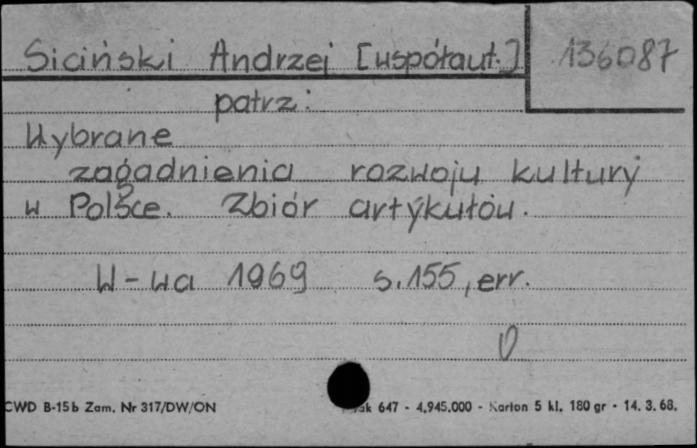 Siciński Andrzej [współaut.] 136087
patrz:
Wybrane
zagadnienia rozwoju kultury
w Polsce. Zbiór artykułów.
W-wa 1969 s. 155, err.
CWD B-15b Zam. Nr 317/DW/ON 647 - 4.945.000 - Karton 5 kl. 180 gr - 14. 3. 68.